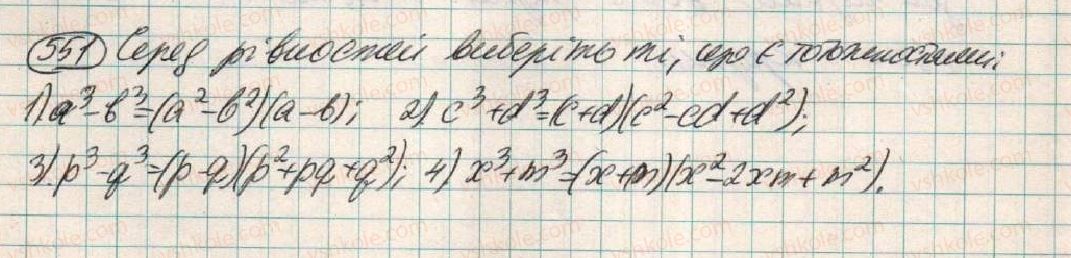 551 Серед рівностей виберіть ті, що є тотожностями:
1) a³-b³=(a²-b²)(a-b); 2) c³+d³=(c+d)(c²-cd+d²);
3) p³-q³=(p-q)(p²+pq+q²); 4) x³+m³=(x+m)(x²-2xm+m²).